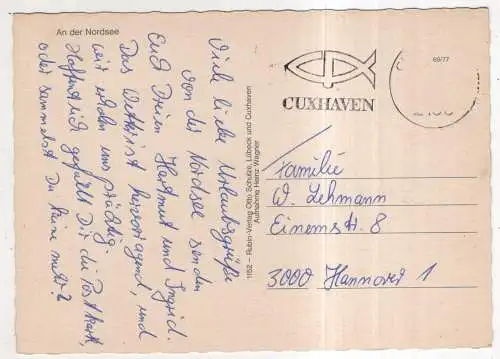 An der Nordsee
Viele liebe Urlaubsgrüße
von der Nordsee senden
Euch Dreien Hartmut und Ingrid.
Das Wetter ist hervorragend, und
wir erholen uns prächtig.
Hoffentlich gefällt Dir die Postkarte,
oder sammelst Du keine mehr?
1152 – Rubin-Verlag Otto Schulze, Lübeck und Cuxhaven
Aufnahme Heinz Wagner
CUXHAVEN
69/77
Familie
W. Lehmann
Einemstr. 8
3000 Hannover 1